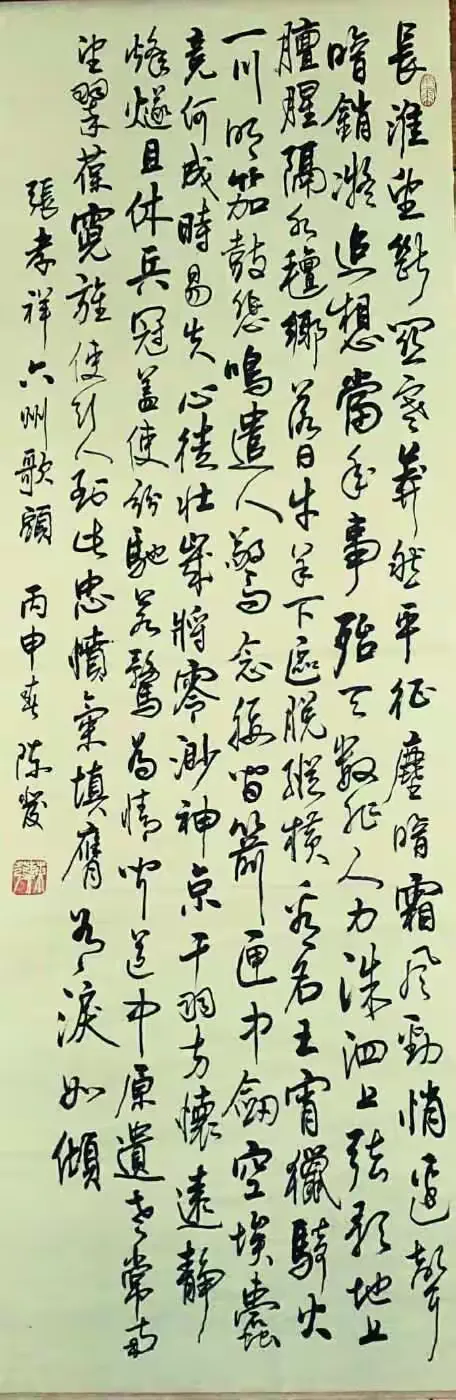 長淮望斷關塞莽然平征塵暗霜風勁悄邊聲
暗銷凝追想當年事殆天數非人力洙泗上弦歌地亦
膻腥隔水氈鄉落日牛羊下區脫縱橫看名王宵獵騎火
一川明笳鼓悲鳴遣人驚念腰間箭匣中劍空埃蠹
竟何成時易失心徒壯歲將零渺神京干羽方懷遠靜
烽燧且休兵冠蓋使紛馳若騖為情聞道中原遺老常南
望翠葆霓旌使行人到此忠憤氣填膺有淚如傾
張孝祥六州歌頭 丙申春 陳發